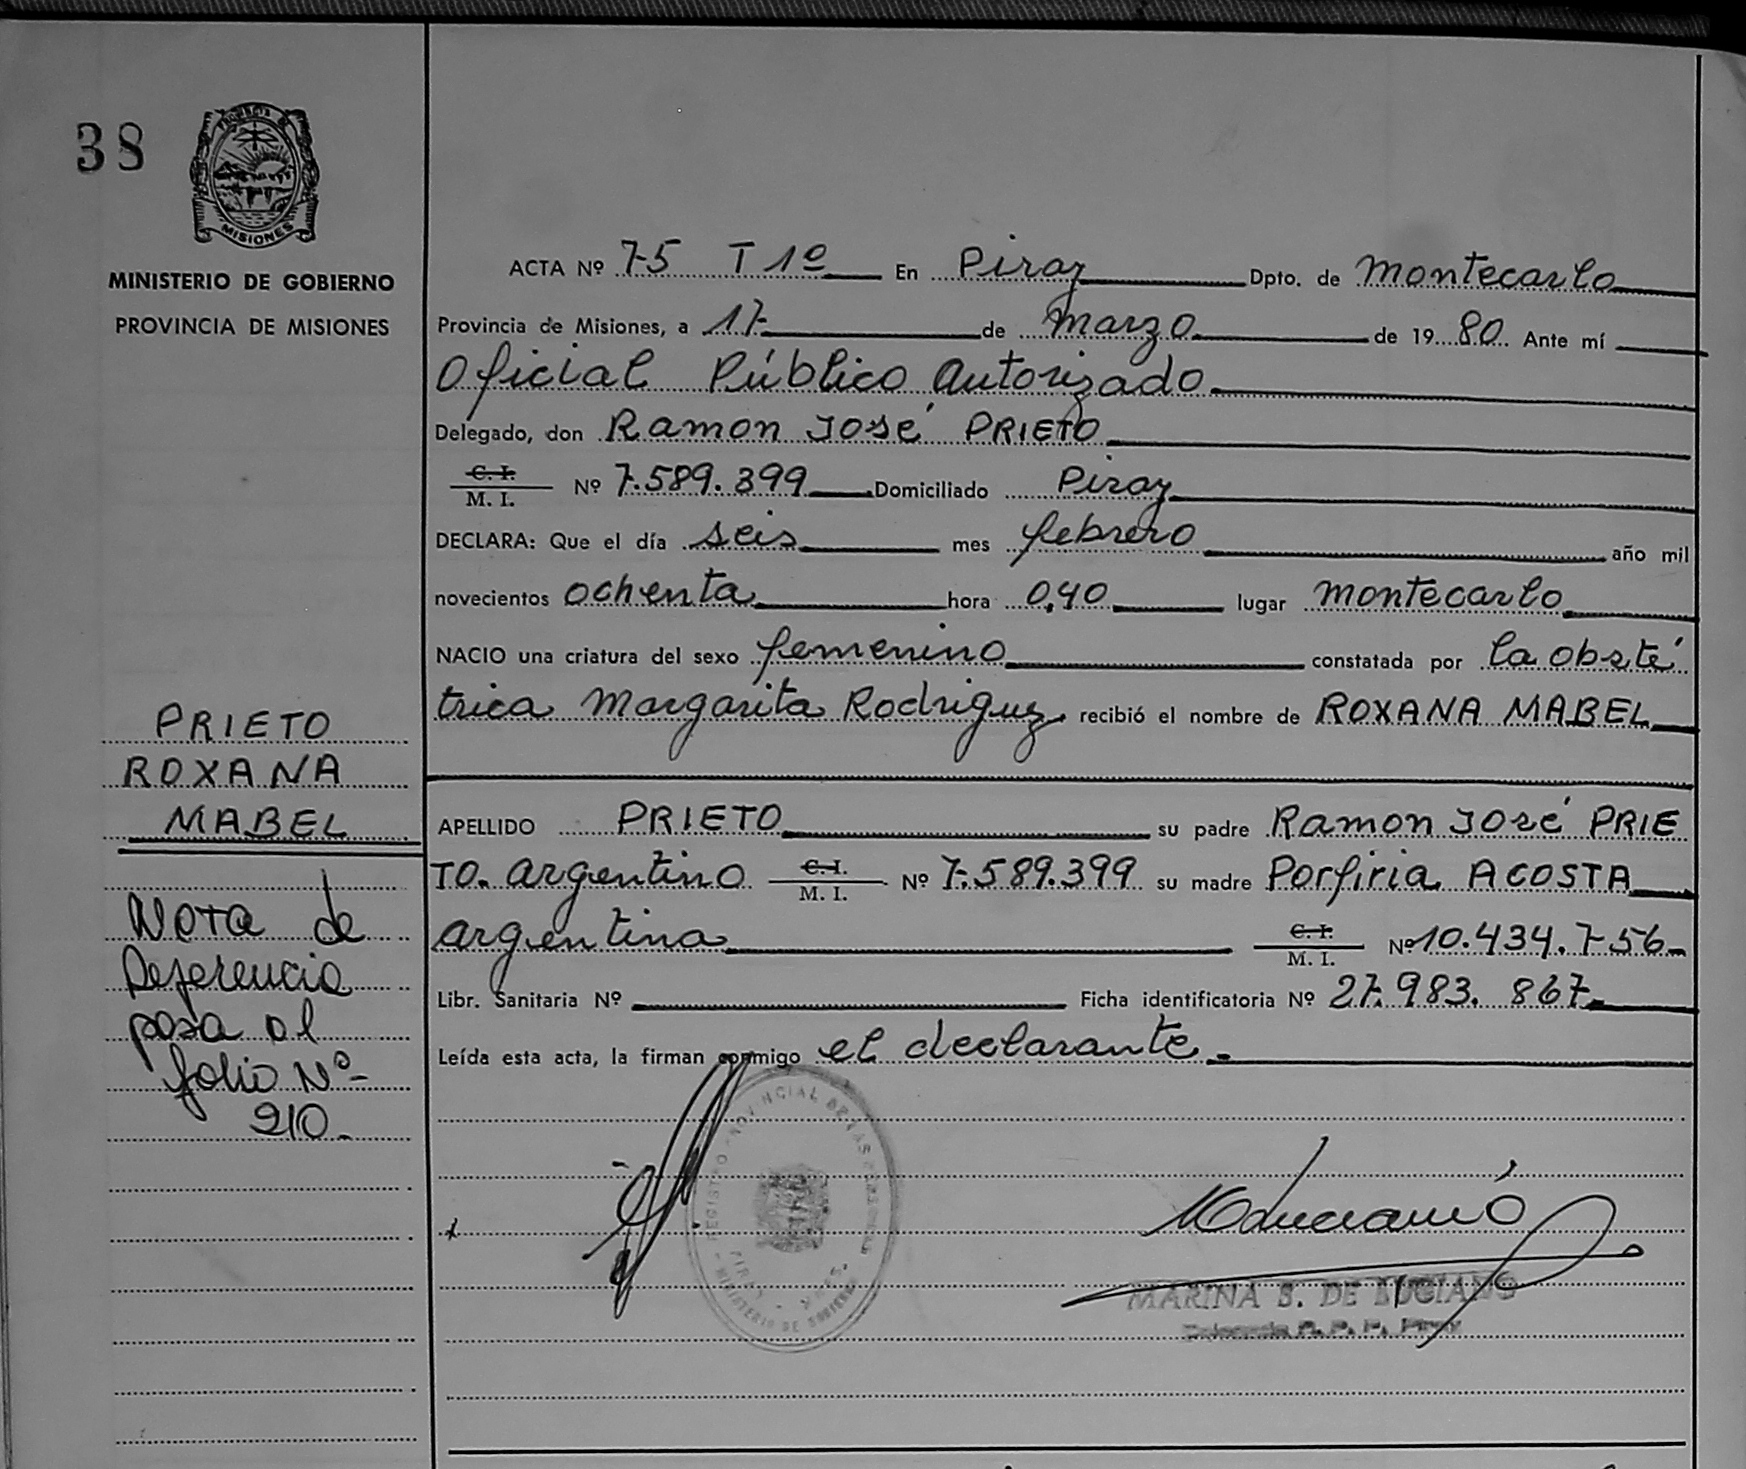 38
MISIONES
MINISTERIO DE GOBIERNO
PROVINCIA DE MISIONES
ACTA Nº 75 T 1º En Piray Dpto. de Montecarlo
Provincia de Misiones, a 17 de Marzo de 1980. Ante mí
Oficial Público Autorizado
Delegado, don Ramon José PRIETO
C. I.
M. I. Nº 7.589.399 Domiciliado Piray
DECLARA: Que el día seis mes febrero año mil
novecientos ochenta hora 0,40 lugar Montecarlo
NACIO una criatura del sexo femenino constatada por la obsté
trica Margarita Rodriguez recibió el nombre de ROXANA MABEL
PRIETO
ROXANA
MABEL
APELLIDO PRIETO su padre Ramon José PRIE
TO. argentino C. I. M. I. Nº 7.589.399 su madre Porfiria ACOSTA
argentina C. I. M. I. Nº 10.434.756-
Libr. Sanitaria Nº Ficha identificatoria Nº 27.983.867
Leída esta acta, la firman conmigo el declarante.
Nota de
Deferencia
pasa al
folio Nº-
210-
REGISTRO PROVINCIAL DE LAS PERSONAS
MINISTERIO DE GOBIERNO
MARINA S. DE LUCIANO
R. P. P. Piray